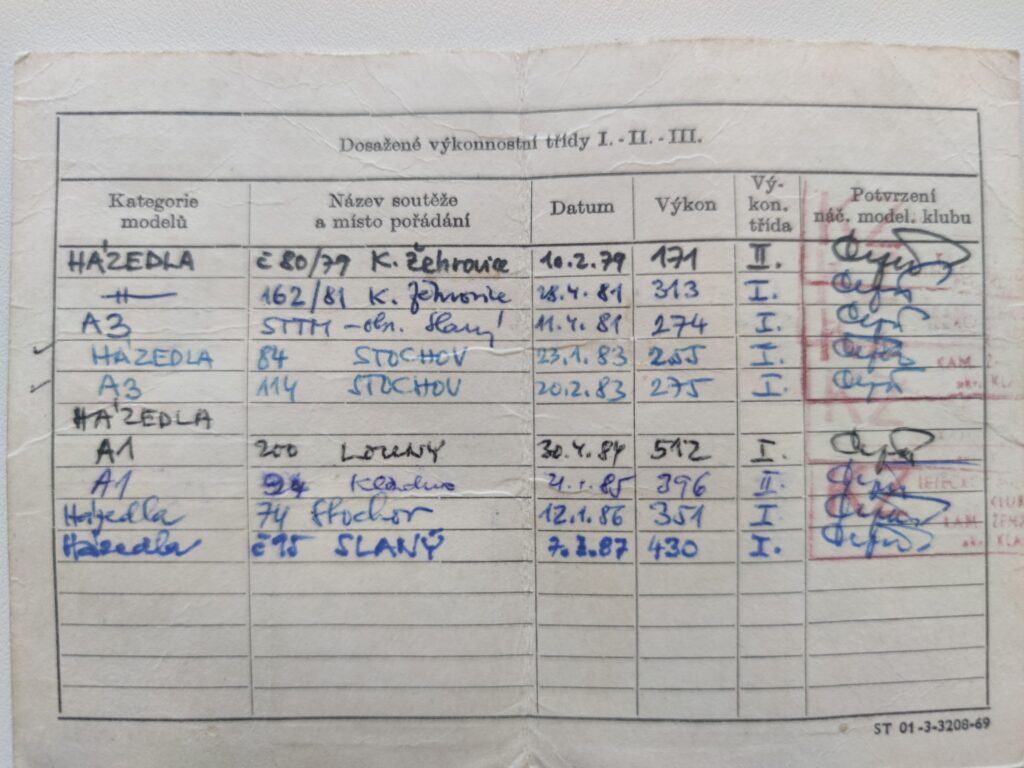 Dosažené výkonnostní třídy I. - II. - III.
Kategorie modelů Název soutěže a místo pořádání Datum Výkon Vý-kon. třída Potvrzení náč. model. klubu
HÁZEDLA č 80/79 K. Žehrovice 10.2.79 171 II.
162/81 K. Žehrovice 28.4.81 313 I.
A3 STTM - Slaný 11.4.81 274 I.
HÁZEDLA 84 STOCHOV 23.1.83 255 I.
A3 114 STOCHOV 20.2.83 275 I.
HÁZEDLA
A1 200 LOUNY 30.4.84 512 I.
A1 94 Kladno 85 396 II.
Házedla 74 Stochov 12.1.86 351 I.
Házedla č 95 SLANÝ 87 430 I.
ST 01-3-3208-69